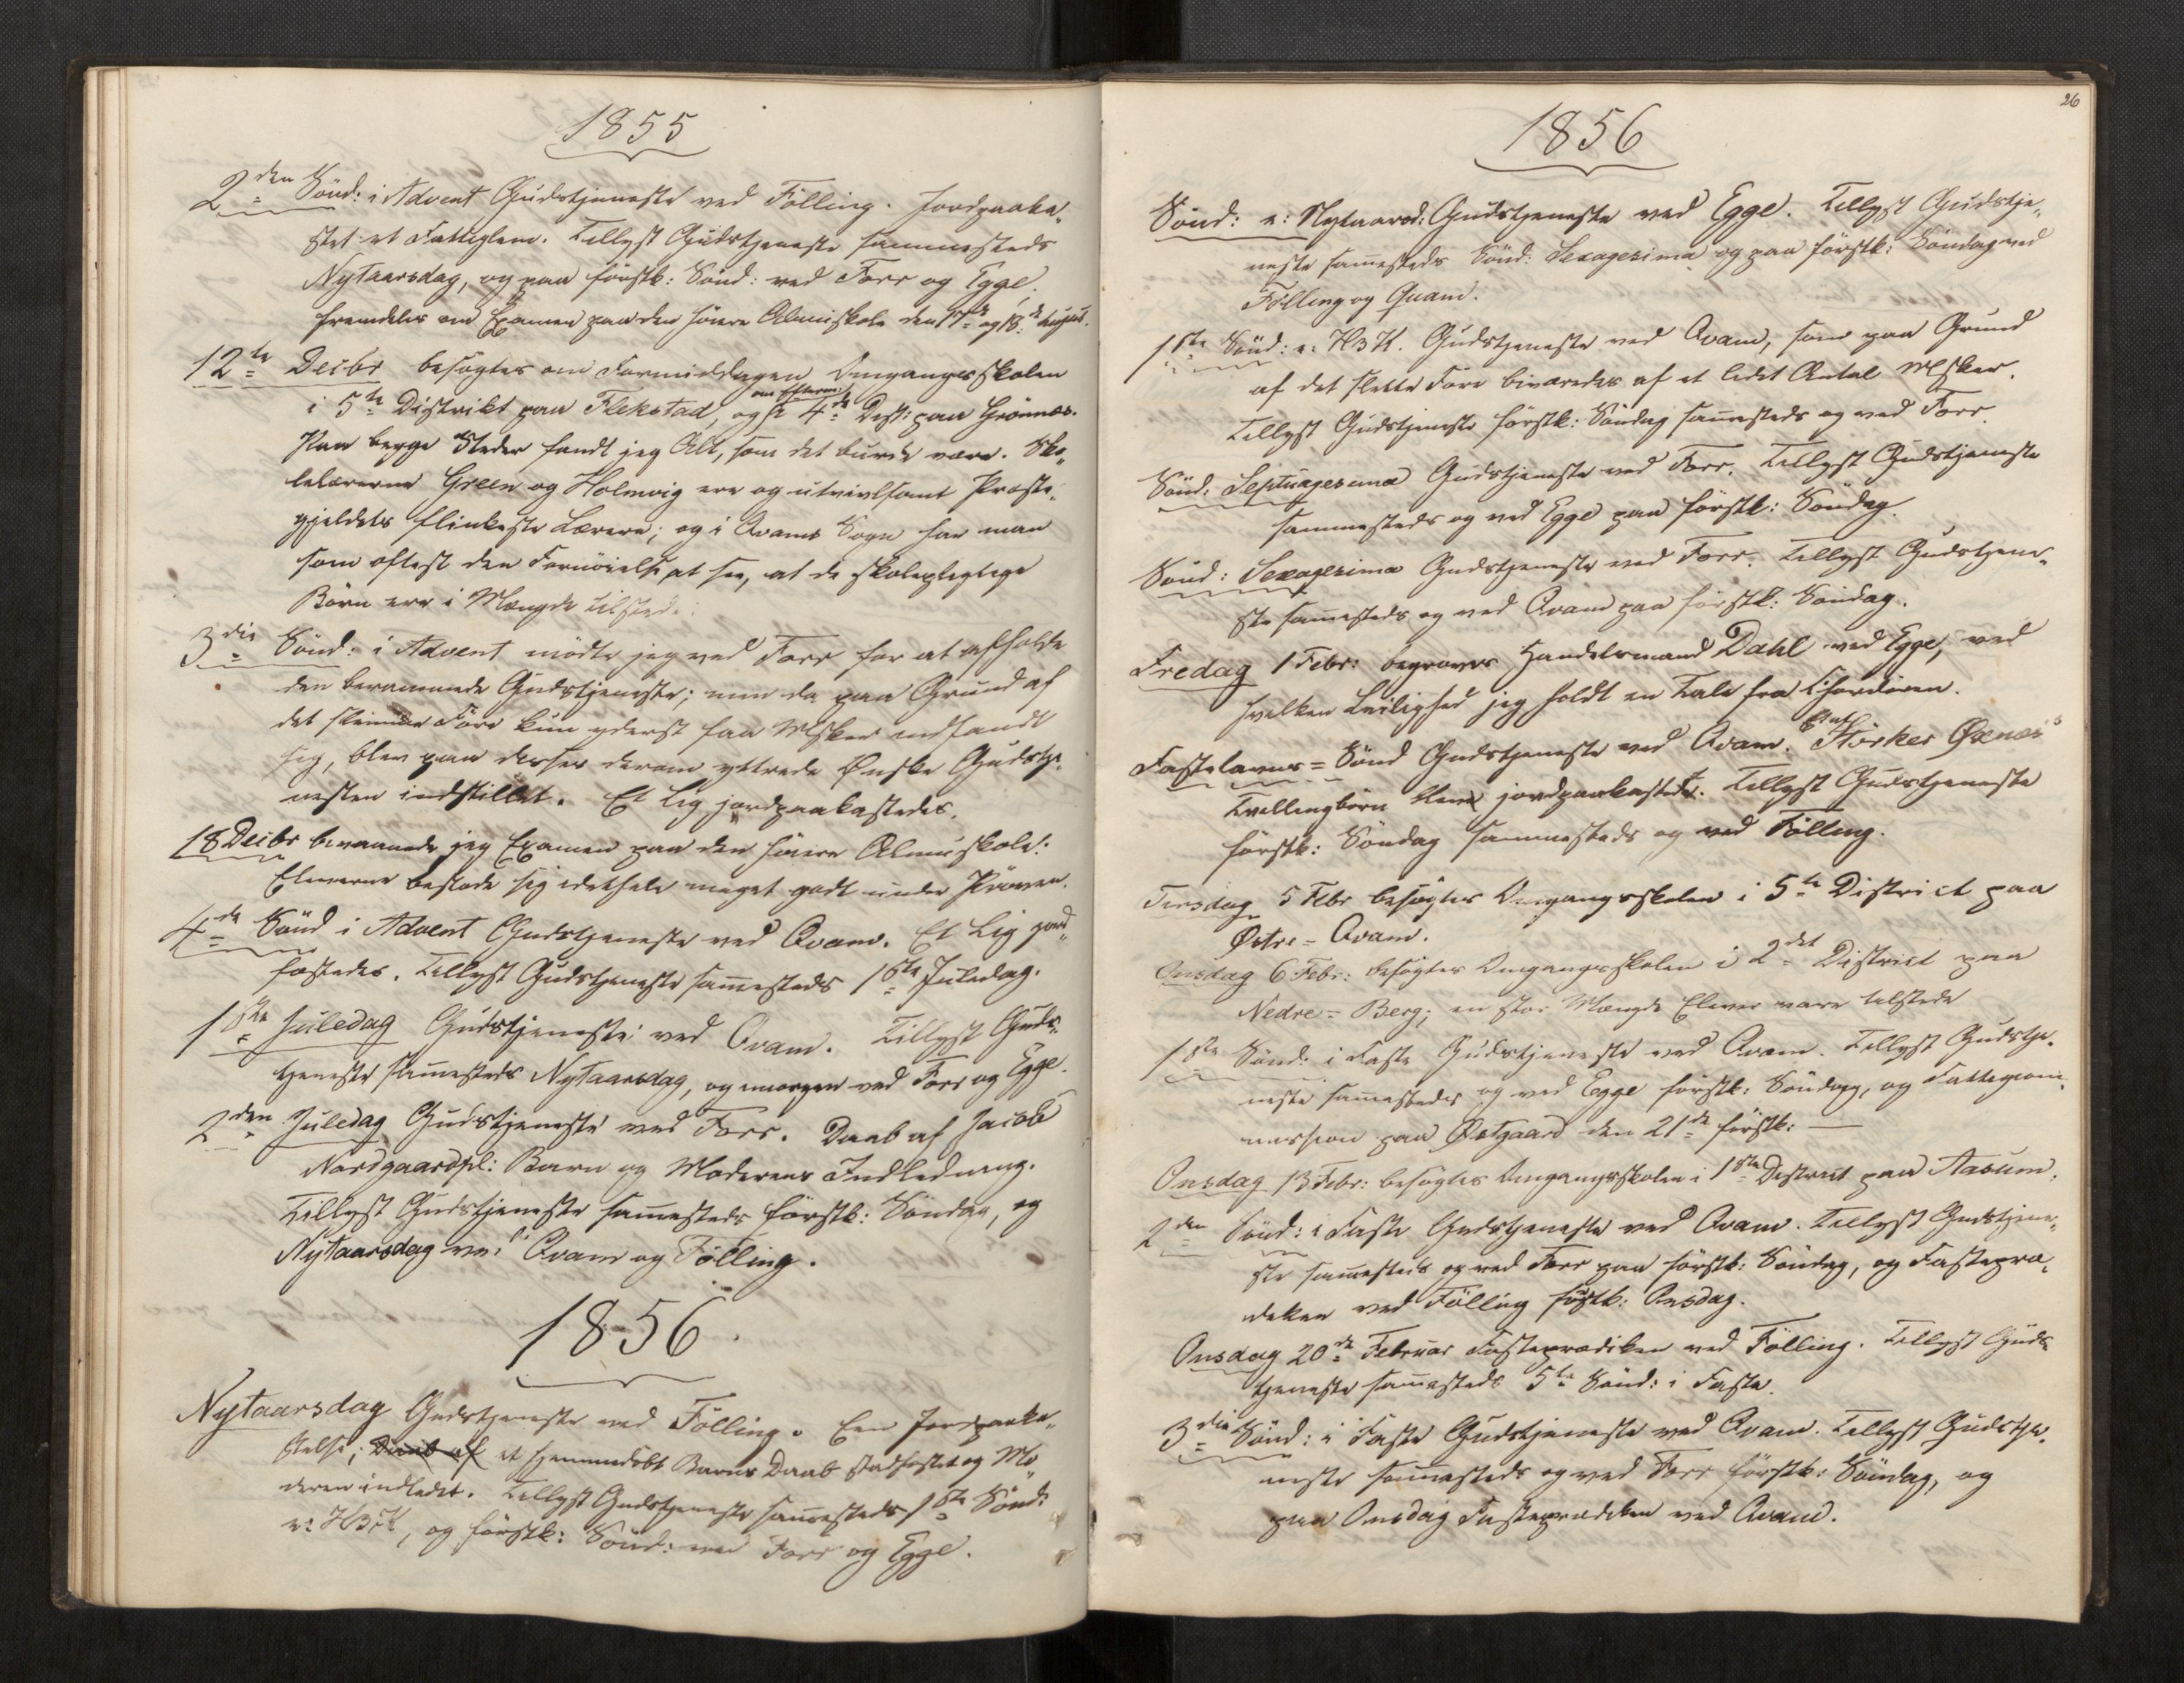 1855
2den Sönd: i Advent Gudstjeneste ved Fölling. Jordpaaka„
stet et Fattiglem. Tillyst Gudstjeneste sammesteds
Nytaarsdag, og paa förstk: Sönd: ved Forr og Egge,
fremdeles om Examen paa den höiere Almuskole den 17de og 18de
12te Decbr besögtes om Formiddagen Omgangsskolen
i 5te Distrikt paa Flekstad, og om Efterm: i 4de Dist: paa Grönnæs.
Paa begge Steder fandt jeg Alt, som det burde være. Sko„
lelærerne Green og Holmvig ere og utvivlsomt Præste„
gjeldets flinkeste Lærere; og i Qvams Sogn har man
som oftest den Fornöielse at see, at de skolepligtige
Börn ere i Mængde tilstede.
3die Sönd: i Advent mödte jeg ved Forr for at afholde
den berammede Gudstjeneste; men da paa Grund af
det slemme Före kun yderst faa Msker indfandt
sig, blev paa disses derom yttrede Ønske Gudstje„
nesten indstillet. Et Lig jordpaakastedes.
18 Decbr bivaanede jeg Examen paa den höiere Almuskole:
Eleverne bestode sig idethele meget godt under Pröven.
4de Sönd i Advent Gudstjeneste ved Qvam. Et Lig jord„
fæstedes. Tillyst Gudstjeneste samesteds 1ste Juledag.
1ste Juledag Gudstjeneste ved Qvam. Tillyst Guds„
tjeneste samesteds Nytaarsdag, og imorgen ved Forr og Egge.
2den Juledag Gudstjeneste ved Forr. Daab af Jacob
Nordgaardspl: Barn og Moderens Indledning.
Tillyst Gudstjeneste samesteds förstk: Söndag, og
Nytaarsdag ved Qvam og Fölling.
1856.
Nytaarsdag Gudstjeneste ved Fölling. Een Jordpaaka„
stelse; Daab af et hjemmedöbt Barns Daab stadfæstet og Mo„
deren indledet. Tillyst Gudstjeneste samesteds 1ste Sönd:
e: H3K, og förstk: Sönd: ved Forr og Egge.
26
1856
Sönd: e: Nytaarsd: Gudstjeneste ved Egge. Tillyst Gudstje„
neste samesteds Sönd: Sexagesima og paa förstk: Söndag ved
Fölling og Qvam.
1ste Sönd: e: H3K. Gudstjeneste ved Qvam, som paa Grund
af det slette Före bivaanedes af et lidet Antal Msker.
Tillyst Gudstjeneste förstk: Söndag samesteds og ved Forr.
Sönd: Septuagesima Gudstjeneste ved Forr. Tillyst Gudstjeneste
sammesteds og ved Egge paa förstk: Söndag.
Sönd: Sexagesima Gudstjeneste ved Forr. Tillyst Gudstjene„
ste samesteds og ved Qvam paa förstk: Söndag.
Fredag 1 Febr: begroves Handelsmand Dahl ved Egge, ved
hvilken Leilighed jeg holdt en Tale fra Chordören.
Fastelavns=Sönd Gudstjeneste ved Qvam. Et af Störker Øxnæs's
Tvillingbörn blev jordpaakastet. Tillyst Gudstjeneste
förstk: Söndag sammesteds og ved Fölling.
Tirsdag 5 Febr besögtes Omgangsskolen i 5te District paa
Østre=Qvam.
Onsdag 6 Febr: besögtes Omgangsskolen i 2det District paa
Nedre=Berg; en stor Mængde Elever vare tilstede
1ste Sönd: i Faste Gudstjeneste ved Qvam. Tillyst Gudstje„
neste samesteds og ved Egge förstk: Söndag, og Fattigcom„
mission paa Østgaard den 21de förstk:
Onsdag 13 Febr: besögtes Omgangsskolen i 1ste District paa Aasum.
2den Sönd: i Faste Gudstjeneste ved Qvam. Tillyst Gudstjene„
ste samesteds og ved Forr paa förstk: Söndag, og Fastepræ„
diken ved Fölling förstk: Onsdag.
Onsdag 20de Februar Fasteprædiken ved Fölling. Tillyst Guds„
tjeneste samesteds 5te Sönd: i Faste.
3die Sönd: i Faste Gudstjeneste ved Qvam. Tillyst Gudstje„
neste samesteds og ved Forr förstk: Söndag, og
paa Onsdag Fasteprædiken ved Qvam.